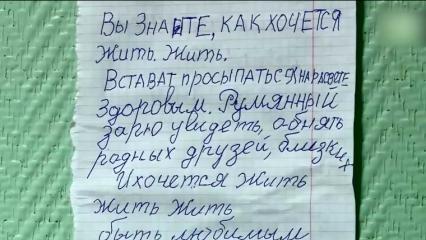 Вы знаите, как хочется
жить. Жить.
Встават просыпаться на расвете
здоровым. Румянный
зарю увидеть, обнять
родных друзей, близких
И хочется жить
жить жить
быть любимым